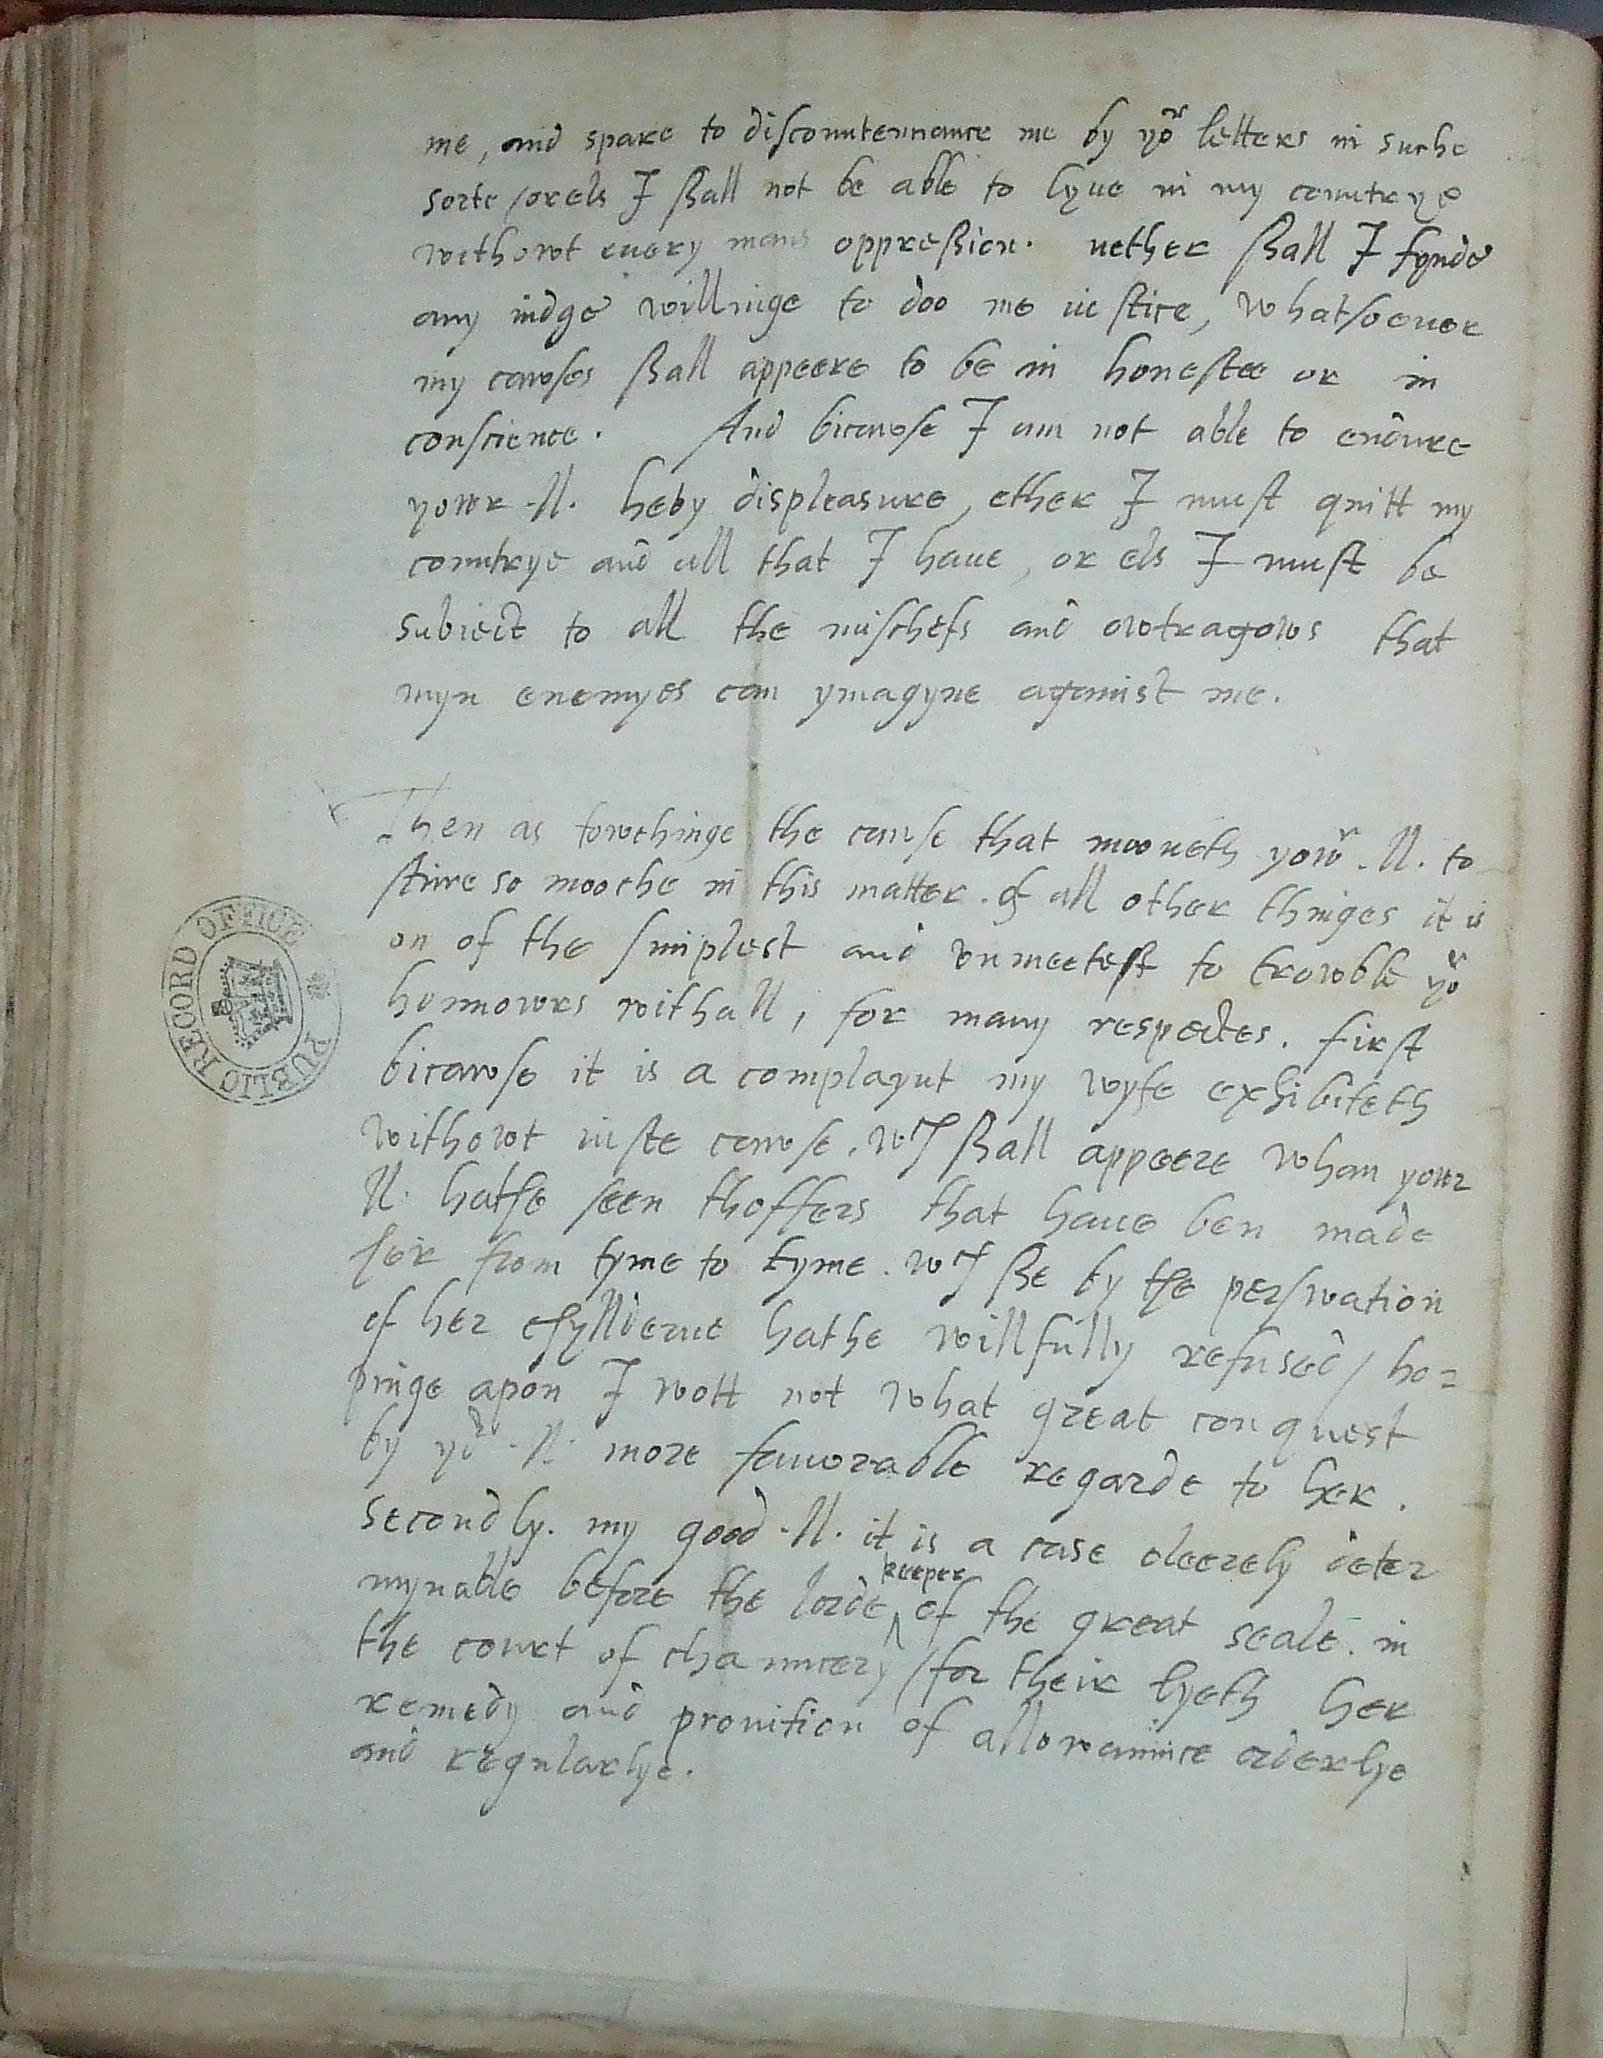 me, and spare to discountennance me by yor letters in suche
sorte / or els I shall not be able to lyue in my countrye
withowt euery mans oppression. nether shall I fynde
any iudge willinge to doo me iustice, whatsoeuer
my cawses shall appeere to be in honestee or in
conscience. And bicawse I am not able to endure
yowr .ll. heuy displeasure, ether I must quitt my
countrye and all that I haue, or els I must be
subiecte to all the mischefs and owtragows that
myn enemyes can ymagyne against me.
Then as towchinge the cause that mooueth yowr .ll. to
sturre so mooche in this matter. of all other thinges it is
on of the simplest and vnmeetest to trowble yor
honnowrs withall, for many respectes. first
bicawse it is a complaynt my wyfe exhibiteth
withowt iuste cawse. wch shall appeere whan your
ll. hathe seen thoffers that haue ben made
her from tyme to tyme. wch she by the perswation
of her chyllderne hathe willfully refused / ho=
pinge apon I wott not what great conquest
by yor .ll. more fauorable regarde to her.
secondly. my good .ll. it is a case cleerely deter
mynable before the lorde ^keeper of the great seale. in
the court of chauncery / for their lyeth her
remedy and prouition of allowaunce orderlye
and regularlye.
PUBLIC RECORD OFFICE